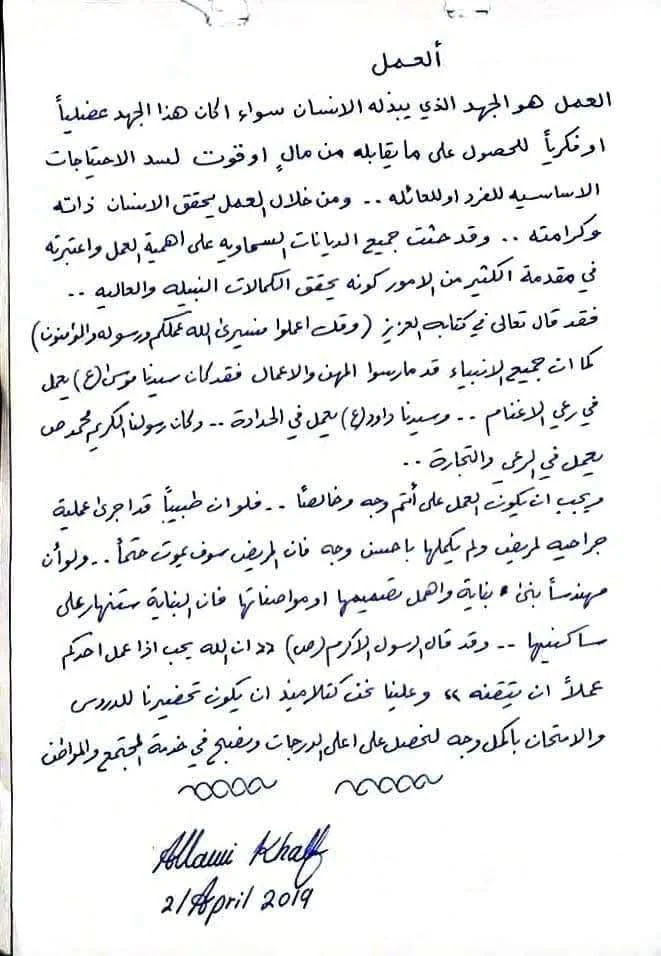 ألعمل
العمل هو الجهد الذي يبذله الانسان سواء اكان هذا الجهد عضلياً
او فكرياً للحصول على ما يقابله من مالٍ او قوت لسد الاحتياجات
الاساسيه للفرد او للعائله .. ومن خلال العمل يحقق الانسان ذاته
وكرامته .. وقد حثت جميع الديانات السماويه على اهمية العمل واعتبرته
في مقدمة الكثير من الامور كونه يحقق الكمالات النبيله والعاليه ..
فقد قال تعالى في كتابه العزيز (وقل اعملوا فسيرى الله عملكم ورسوله والمؤمنون)
كما ان جميع الانبياء قد مارسوا المهن والاعمال فقد كان سيدنا موسى (ع) يعمل
في رعي الاغنام .. وسيدنا داود (ع) يعمل في الحدادة .. وكان رسولنا الكريم محمد ص
يعمل في الرعي والتجارة ..
ويجب ان يكون العمل على أتم وجه وخالصاً .. فلو ان طبيباً قد اجرى عملية
جراحيه لمريض ولم يكملها باحسن وجه فان المريض سوف يموت حتماً .. ولو أن
مهندساً بنى بناية واهمل تصميمها او مواصفاتها فان البناية ستنهار على
ساكنيها .. وقد قال الرسول الاكرم (ص) «ان الله يحب اذا عمل احدكم
عملاً ان يتقنه» وعلينا نحن كتلاميذ ان يكون تحضيرنا للدروس
والامتحان باكمل وجه لنحصل على اعلى الدرجات ونصبح في خدمة المجتمع والمواطن
Allami Khalf
21 April 2019